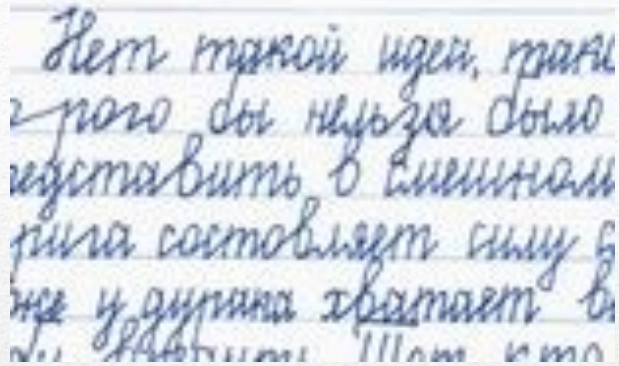 Нет такой идеи, тако
рого бы нельзя было
едставить в смешном
рига состовляет силу с
же у дурака хватает в